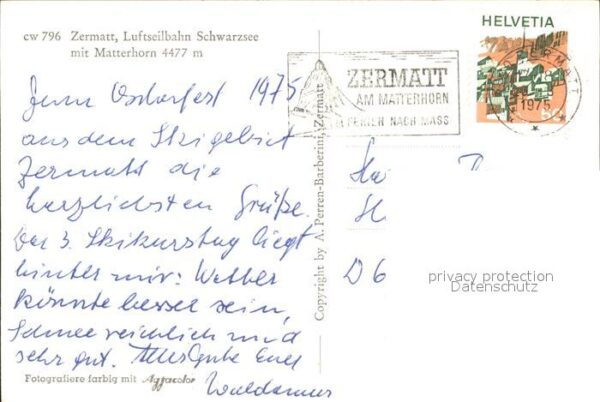 cw 796 Zermatt, Luftseilbahn Schwarzsee
mit Matterhorn 4477 m
Zum Osterfest 1975
aus dem Skigebiet
Zermatt die
herzlichsten Grüße.
Der 3. Skikurstag liegt
hinter mir: Wetter
könnte besser sein,
Schnee reichlich und
sehr gut. Alles Gute Euer
Waldemar
Fotografiere farbig mit Agfacolor
Copyright by A. Perren-Barberini, Zermatt
ZERMATT
AM MATTERHORN
FERIEN NACH MASS
HELVETIA
ZERMATT
1975
D 6
privacy protection
Datenschutz